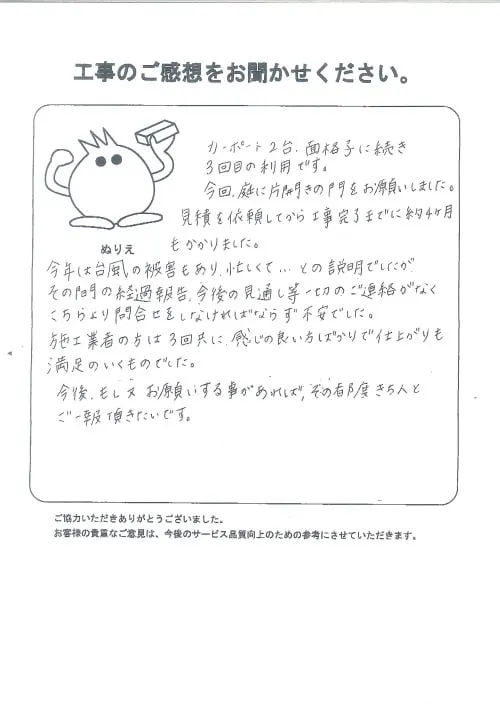 工事のご感想をお聞かせください。
カーポート2台、面格子に続き
3回目の利用です。
今回、庭に片開きの門をお願いしました。
見積を依頼してから工事完了までに約4ヶ月
もかかりました。
ぬりえ
今年は台風の被害もあり、忙しくて…との説明でしたが
その間の経過報告、今後の見通し等一切のご連絡がなく
こちらより問合せをしなければならず不安でした。
施工業者の方は3回共に、感じの良い方ばかりで仕上がりも
満足のいくものでした。
今後、もし又お願いする事があれば、その都度きちんと
ご一報頂きたいです。
ご協力いただきありがとうございました。
お客様の貴重なご意見は、今後のサービス品質向上のための参考にさせていただきます。